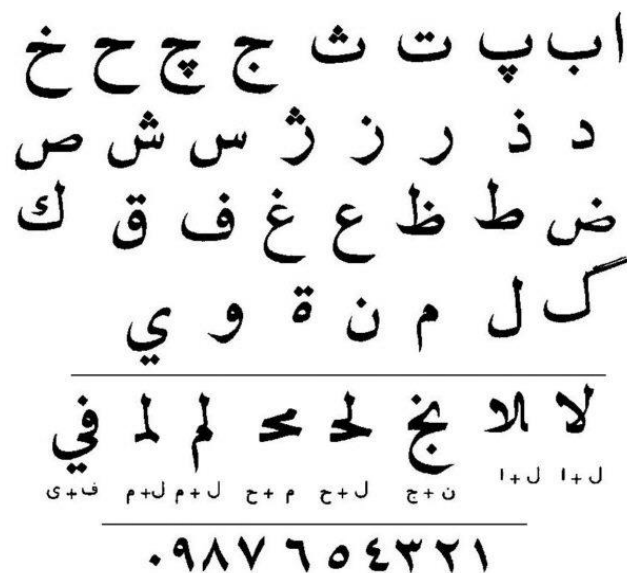 ا ب پ ت ث ج چ ح خ
د ذ ر ز ژ س ش ص
ض ط ظ ع غ ف ق ك
گ ل م ن ة و ي
لا ـلا نج لح محـ لم لمـ في
ل+ا ل+ا ن+ج ل+ح م+ح ل+م ل+م ف+ى
١ ٢ ٣ ٤ ٥ ٦ ٧ ٨ ٩ ٠